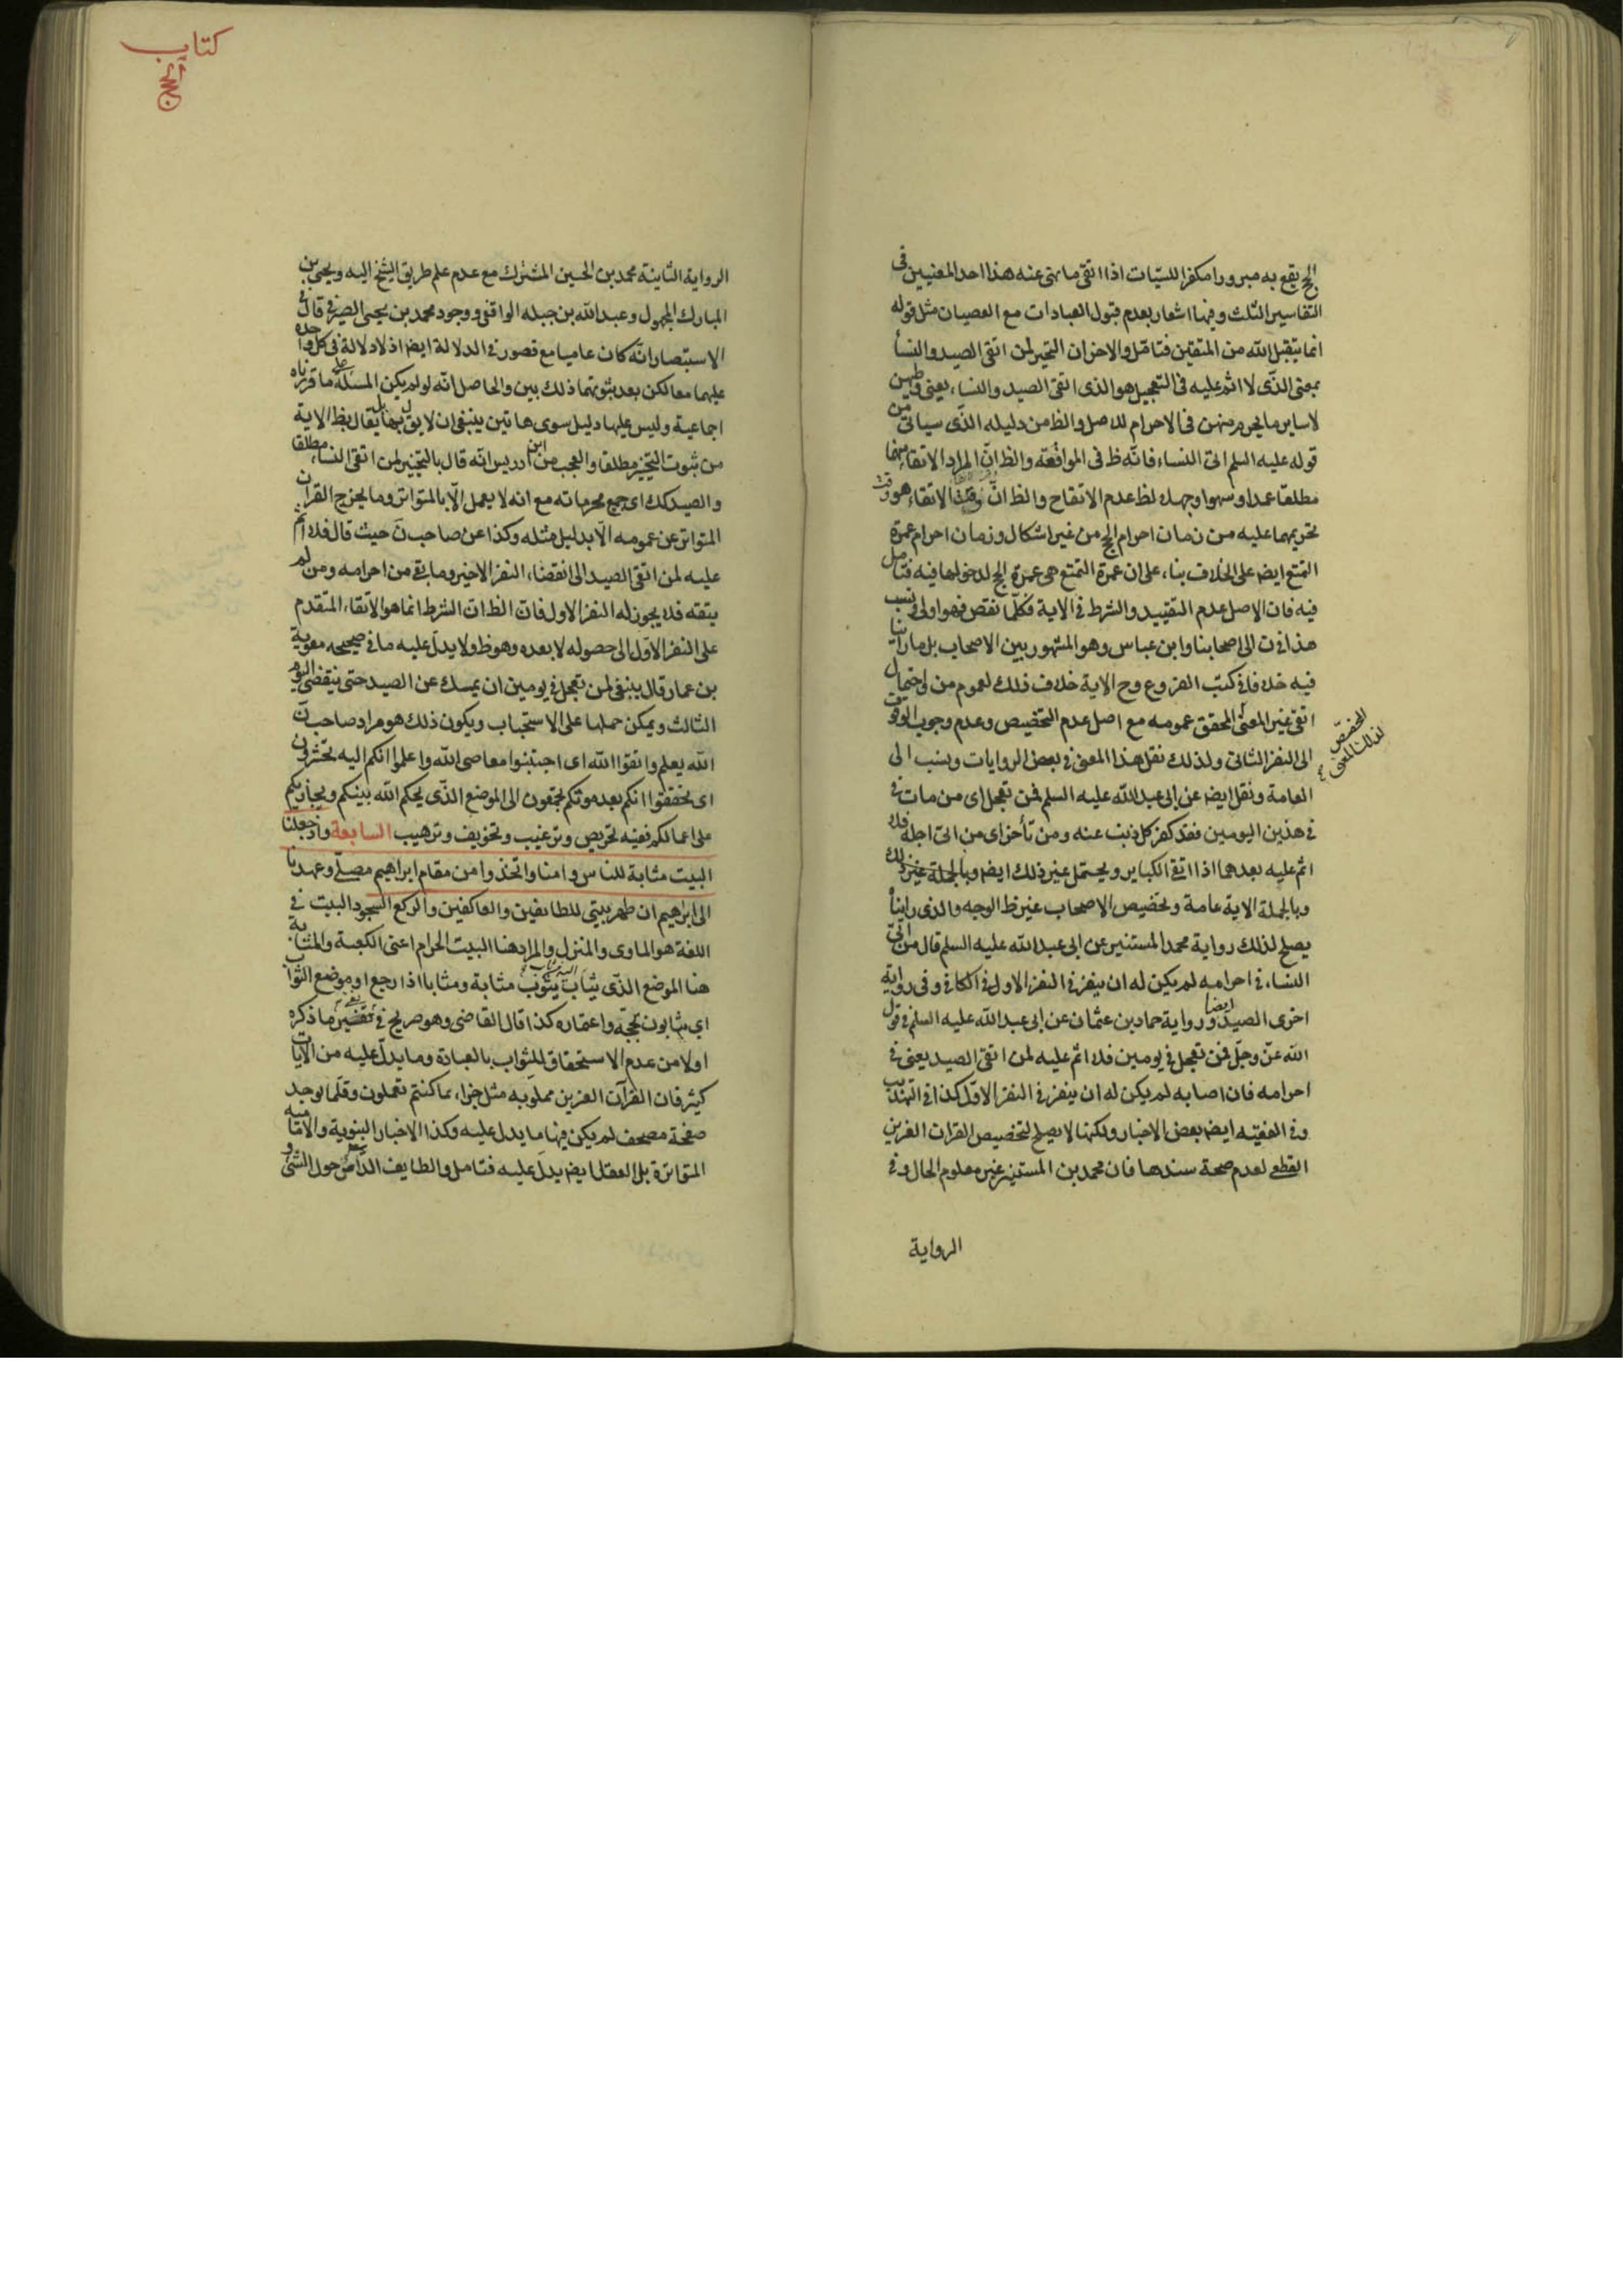 الحج يقع به مبرورا مكفرا للسيئات اذا اتقى ما نهى عنه هذا احد المعنيين في
التفاسير الثلث وفيها اشعار بعدم قبول العبادات مع العصيان مثل قوله
انما يتقبل الله من المتقين فتامل والاخر ان التخيير لمن اتقى الصيد والنسآ
بمعنى الذى لا اثم عليه فى التعجيل هو الذى اتقى الصيد والنساء يعنى وطيهن
لا ساير ما يحرم منهن فى الاحرام للاصل والظ من دليله الذى سياتى من
قوله عليه السلم اتى النساء فانه ظ فى المواقعة والظ ان المراد الاتقاء منهما
مطلقا عمدا وسهوا وجهلا لظ عدم الاتقاء والظ ان وقت الاتقاء هو وقت
تحريمهما عليه من زمان احرام الحج من غير اشكال وزمان احرام عمرة
التمتع ايضا على الخلاف بناء على ان عمرة التمتع هى عمرة الحج لدخولها فيه فتامل
فيه فان الاصل عدم التقييد والشرط فى الاية فكلما نقص فهو اولى ونسب
هذا فى ن الى اصحابنا وابن عباس وهو المشهور بين الاصحاب بل ما راينا
فيه خلافا فى كتب الفروع وح الاية خلاف ذلك لعموم من واحتمال
اتقى غير المعنى المحقق عمومه مع اصل عدم التخصيص وعدم وجوب التوقف
المخصص
لذلك المعنى
الى النفر الثانى ولذلك نقل هذا المعنى فى بعض الروايات ونسب الى
العامة ونقل ايضا عن ابى عبد الله عليه السلم فمن تعجل اى من مات فى
فى هذين اليومين فقد كفر كل ذنب عنه ومن تأخر اى من اتى اجله فلا
اثم عليه بعدهما اذا اتقى الكباير ويحتمل غير ذلك ايضا وبالجملة غير ذلك
وبالجملة الاية عامة وتخصيص الاصحاب غير ظ الوجه والذى رايناه
يصلح لذلك رواية محمد المستنير عن ابى عبد الله عليه السلم قال من اتى
النساء فى احرامه لم يكن له ان ينفر فى النفر الاول فى الكافى وفى رواية
اخرى الصيد ايضا ورواية حماد بن عثمان عن ابى عبد الله عليه السلم فى قول
الله عز وجل فمن تعجل فى يومين فلا اثم عليه لمن اتقى الصيد يعنى فى
احرامه فان اصابه لم يكن له ان ينفر فى النفر الاول كذا فى التهذيب
وفى الفقيه ايضا بعض الاخبار ولكنها لا يصلح لتخصيص القران العزيز
القطعى لعدم صحة سندها فان محمد بن المستنير غير معلوم الحال وفى
الرواية
كتاب
الرواية الثانية محمد بن الحسين المشترك مع عدم علم طريق الشيخ اليه ويحيى بن
المبارك المجهول وعبد الله بن جبله الواقفى ووجود محمد بن يحيى الصيرفى قال فى
الاستبصار انه كان عاميا مع قصور فى الدلالة ايضا اذ لا دلالة فى كل واحدة
عليهما معا لكن بعد ثبوتهما ذلك بين والحاصل انه لو لم يكن المسئلة على ما قررناه
اجماعية وليس عليها دليل سوى هاتين ينبغى ان لا يق بهما بل يقال بظ الاية
من ثبوت التخيير مطلقا والعجب من ابن ادريس انه قال بالتخيير لمن اتقى النساء مطلقا
والصيد كك اى جميع محرماته مع انه لا يعمل الا بالمتواتر وما يخرج القران
المتواتر عن عمومه الا بدليل مثله وكذا عن صاحب ن حيث قال فلا اثم
عليه لمن اتقى الصيد الى انقضاء النفر الاخير وما بقى من احرامه ومن لم
يتقه فلا يجوز له النفر الاول فان الظ ان الشرط انما هو الاتقاء المتقدم
على النفر الاول الى حصوله لا بعده وهو ظ ولا يدل عليه ما فى صحيحه معوية
بن عمار قال ينبغى لمن تعجل فى يومين ان يمسك عن الصيد حتى ينقضى اليوم
الثالث ويمكن حملها على الاستحباب ويكون ذلك هو مراد صاحب ن
الله يعلم واتقوا الله اى اجتنبوا معاصى الله واعلموا انكم اليه تحشرون
اى تحققوا انكم بعد موتكم تجمعون الى الموضع الذى يحكم الله بينكم ويجازيكم
على اعمالكم ففيه تحريص وترغيب وتخويف وترهيب السابعة واذ جعلنا
البيت مثابة للناس وامنا واتخذوا من مقام ابراهيم مصلى وعهدنا
الى ابراهيم ان طهر بيتى للطائفين والعاكفين والركع السجود البيت فى
اللغة هو الماوى والمنزل والمراد هنا البيت الحرام اعنى الكعبة والمثابة
هنا الموضع الذى يثاب اليه يثوب مثابة ومثابا اذا رجع او موضع الثواب
اى يثابون بحجه واعتماره كذا قال القاضى وهو صريح فى ما ذكره
اولا من عدم الاستحقاق للثواب بالعبادة وما يدل عليه من الايات
كثير فان القرآن العزيز مملو به مثل جزاء بما كنتم تعملون وقلما يوجد
صفحة مصحف لم يكن فيها ما يدل عليه وكذا الاخبار النبوية والامامية
المتواترة بل العقل ايضا يدل عليه فتامل والطايف الداير حول الشئ و